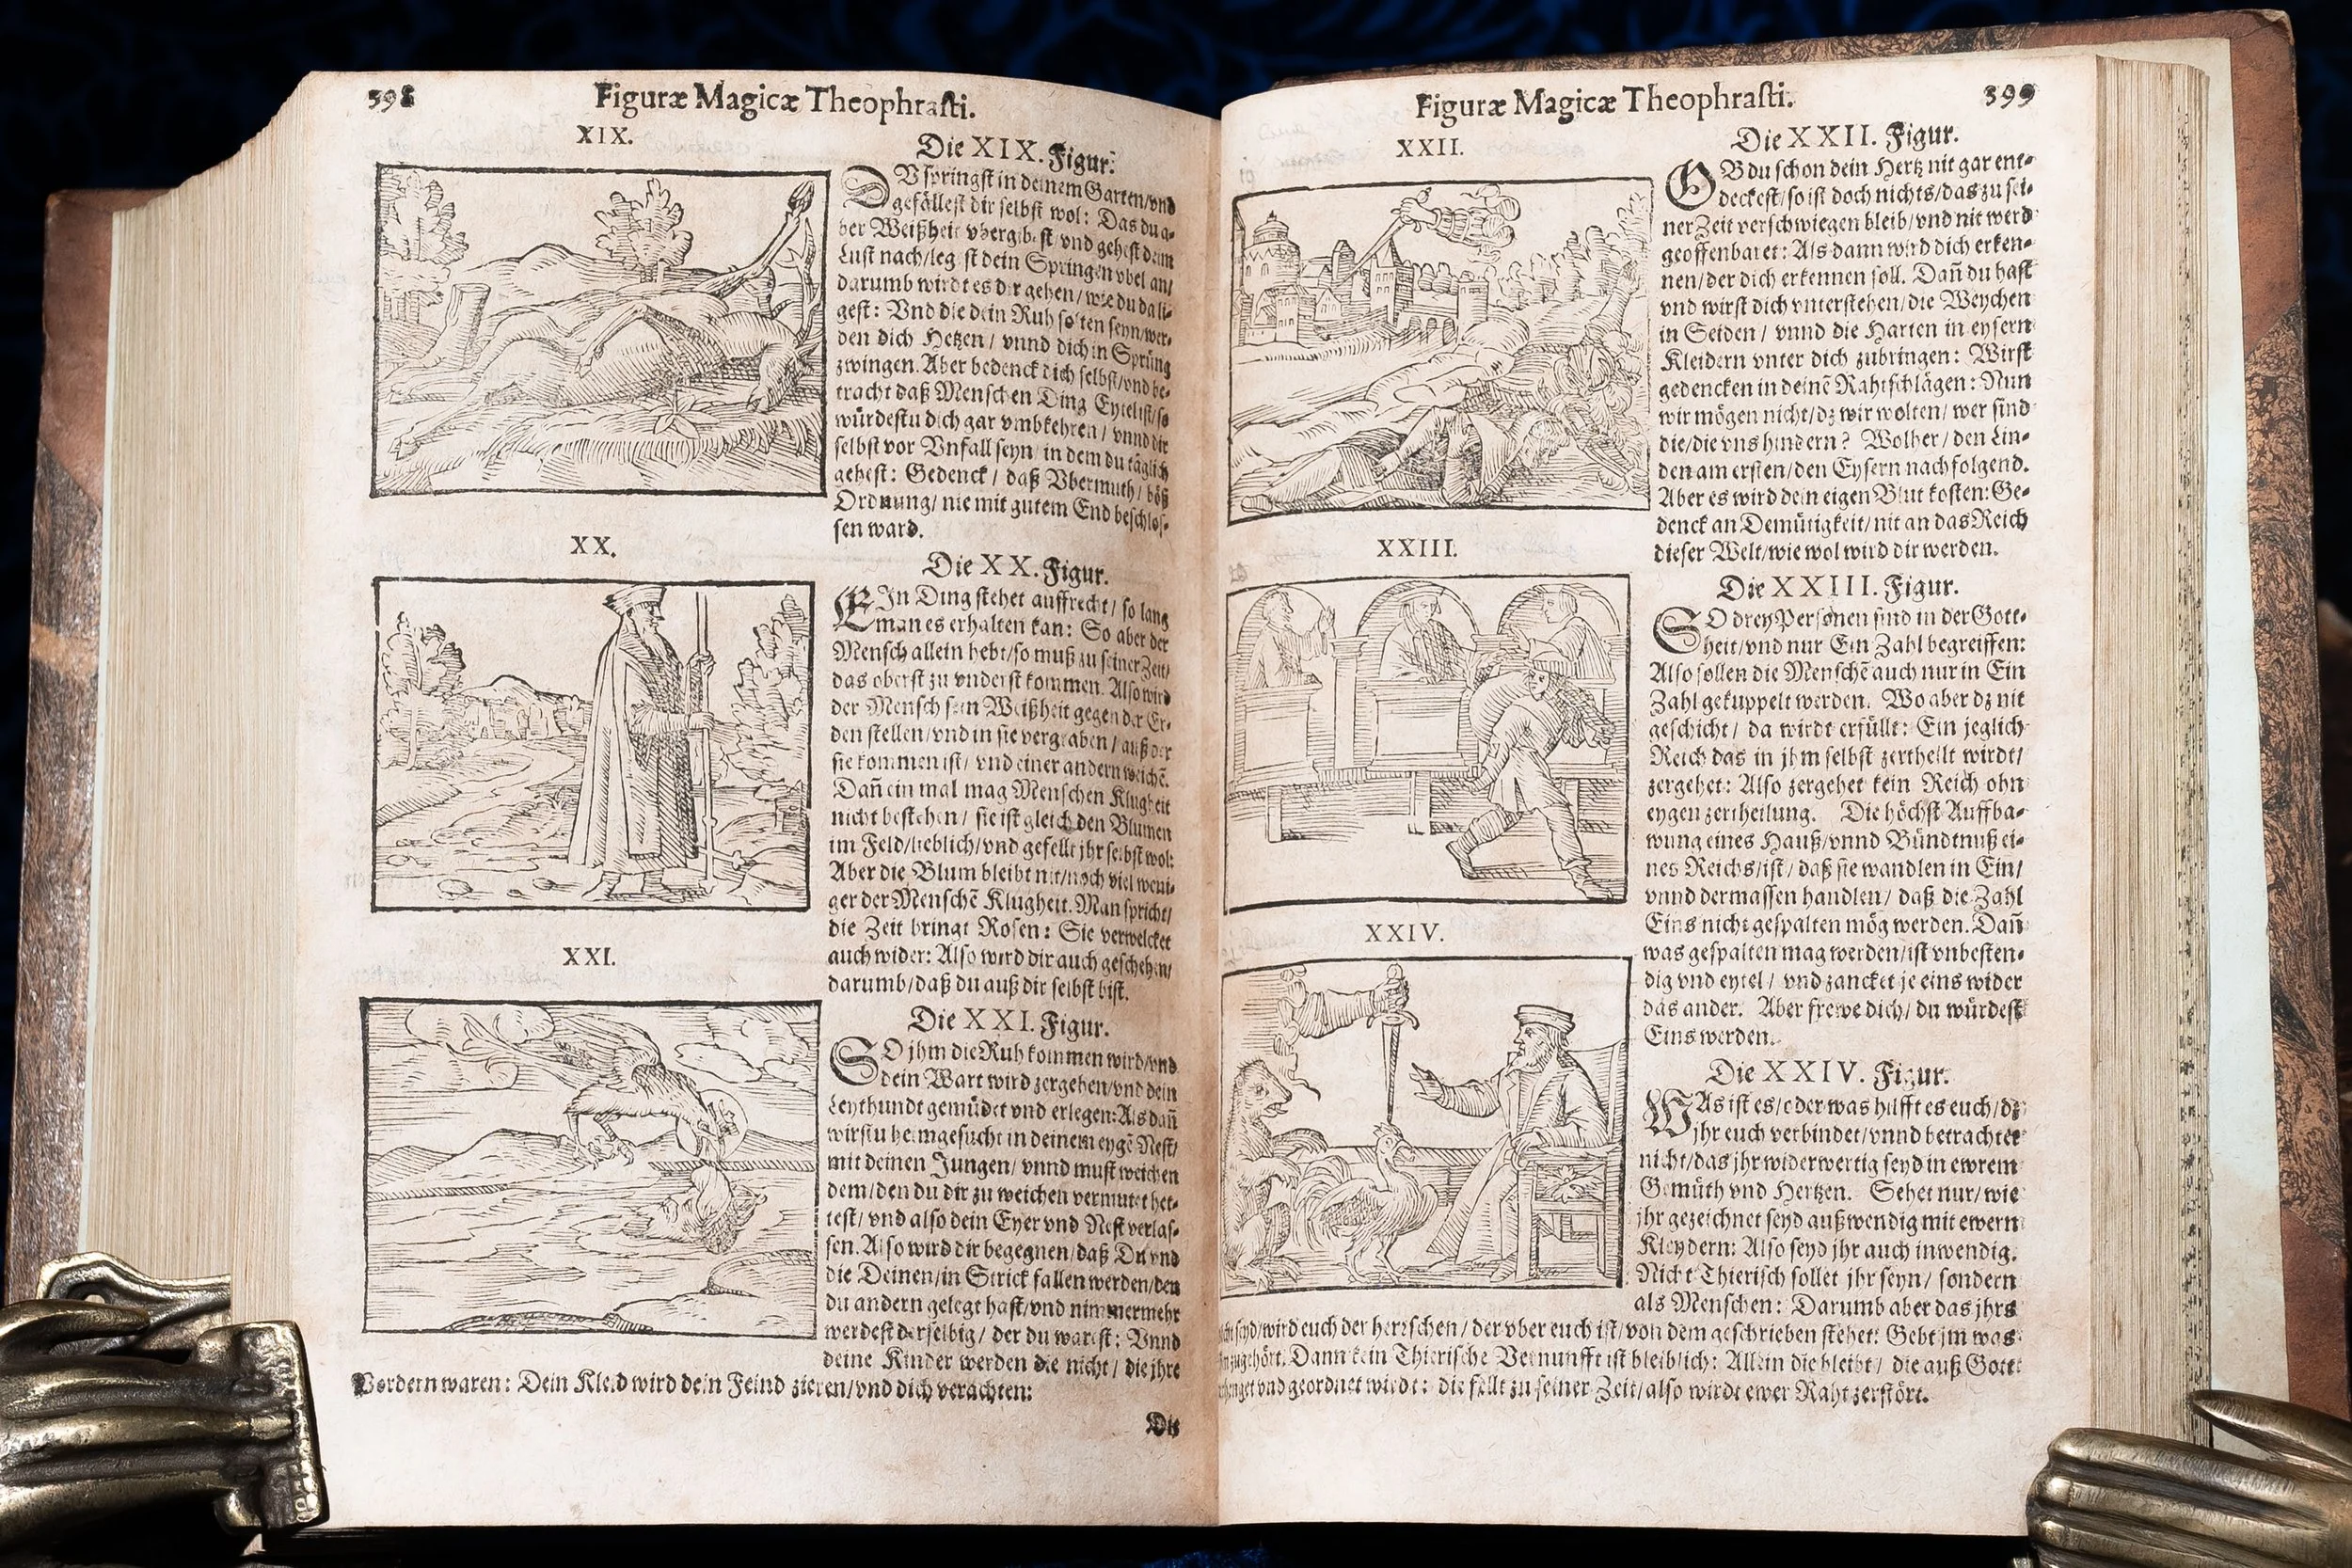 398
Figuræ Magicæ Theophraſti.
XIX.
Die XIX. Figur.
DV ſpringſt in deinem Garten/vnd
gefälleſt dir ſelbſt wol: Das du a-
ber Weißheit vbergibeſt/vnd geheſt dem
Luſt nach/legſt dein Springen vbel an/
darumb wirdt es dir gehen/wie du da li-
geſt: Vnd die dein Ruh ſolten ſeyn/wer-
den dich Hetzen/vnnd dich in Sprüng
zwingen. Aber bedenck dich ſelbſt/vnd be-
tracht daß Menſchen Ding Eytel iſt/ſo
würdeſtu dich gar vmbkehren/vnnd dir
ſelbſt vor Vnfall ſeyn/in dem du täglich
geheſt: Gedenck/daß Vbermuth/böß
Ordnung/nie mit gutem End beſchloſ-
ſen ward.
XX.
Die XX. Figur.
EIn Ding ſtehet auffrecht/ſo lang
man es erhalten kan: So aber der
Menſch allein hebt/ſo muß zu ſeiner Zeit/
das oberſt zu vnderſt kommen. Alſo wird
der Menſch ſein Weißheit gegen der Er-
den ſtellen/vnd in ſie vergraben/auß der
ſie kommen iſt/vnd einer andern weichẽ.
Dañ ein mal mag Menſchen Klugheit
nicht beſtehen/ſie iſt gleich den Blumen
im Feld/lieblich/vnd gefellt jhr ſelbſt wol:
Aber die Blum bleibt nit/noch viel weni-
ger der Menſchẽ Klugheit. Man ſpricht/
die Zeit bringt Roſen: Sie verwelcket
auch wider: Alſo wird dir auch geſchehen/
darumb/daß du auß dir ſelbſt biſt.
XXI.
Die XXI. Figur.
SO jhm die Ruh kommen wird/vnd
dein Wart wird zergehen/vnd dein
Leythundt gemüdet vnd erlegen: Als dañ
wirſtu heimgeſucht in deinem eygẽ Neſt/
mit deinen Jungen/vnnd muſt weichen
dem/den du dir zu weichen vermutet het-
teſt/vnd alſo dein Eyer vnd Neſt verlaſ-
ſen. Alſo wird dir begegnen/daß Du vnd
die Deinen/in Strick fallen werden/den
du andern gelegt haſt/vnd nimmermehr
werdeſt derſelbig/der du wareſt: Vnnd
deine Kinder werden die nicht/die jhre
Vordern waren: Dein Kleid wird dein Feind zieren/vnd dich verachten:
Die
Figuræ Magicæ Theophraſti.
399
XXII.
Die XXII. Figur.
OB du ſchon dein Hertz nit gar ent-
deckeſt/ſo iſt doch nichts/das zu ſei-
ner Zeit verſchwiegen bleib/vnd nit werd
geoffenbaret: Als dann wird dich erken-
nen/der dich erkennen ſoll. Dañ du haſt
vnd wirſt dich vnterſtehen/die Weychen
in Seiden/vnnd die Harten in eyſern
Kleidern vnter dich zubringen: Wirſt
gedencken in deinẽ Rahtſchlägen: Nun
wir mögen nicht/dz wir wolten/wer ſind
die/die vns hindern? Wolher/den Lin-
den am erſten/den Eyſern nachfolgend.
Aber es wird dein eigen Blut koſten: Ge-
denck an Demütigkeit/nit an das Reich
dieſer Welt/wie wol wird dir werden.
XXIII.
Die XXIII. Figur.
SO drey Perſonen ſind in der Gott-
heit/vnd nur Ein Zahl begreiffen:
Alſo ſollen die Menſchẽ auch nur in Ein
Zahl gekuppelt werden. Wo aber dz nit
geſchicht/da wirdt erfüllt: Ein jeglich
Reich das in jhm ſelbſt zertheilt wirdt/
zergehet: Alſo zergehet kein Reich ohn
eygen zertheilung. Die höchſt Auffba-
wung eines Hauß/vnnd Bündtnuß ei-
nes Reichs/iſt/daß ſie wandlen in Ein/
vnnd dermaſſen handlen/daß die Zahl
Eins nicht geſpalten mög werden. Dañ
was geſpalten mag werden/iſt vnbeſten-
dig vnd eytel/vnd zancket je eins wider
das ander. Aber frewe dich/du würdeſt
Eins werden.
XXIV.
Die XXIV. Figur.
WAs iſt es/oder was hilfft es euch/dz
jhr euch verbindet/vnnd betrachtet
nicht/das jhr widerwertig ſeyd in ewrem
Gemüth vnd Hertzen. Sehet nur/wie
jhr gezeichnet ſeyd außwendig mit ewern
Kleydern: Alſo ſeyd jhr auch inwendig.
Nicht Thieriſch ſollet jhr ſeyn/ſondern
als Menſchen: Darumb aber das jhrs
ſeyd/wird euch der herrſchen/der vber euch iſt/von dem geſchrieben ſtehet: Gebt jm was
zugehört. Dann kein Thieriſche Vernunfft iſt bleiblich: Allein die bleibt/die auß Gott
vnd geordnet wirdt: die fellt zu ſeiner Zeit/alſo wirdt ewer Raht zerſtört.